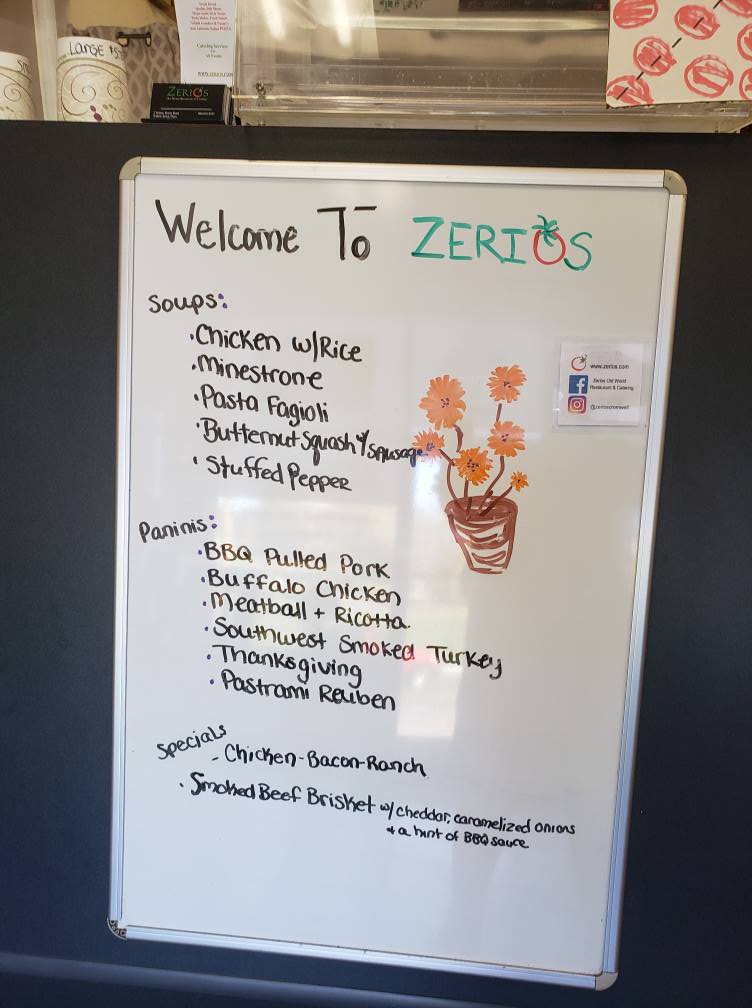 LARGE
Catering Services
www.zerios.com
ZERIOS
Welcome To ZERIOS
Soups:
·Chicken w/Rice
·Minestrone
·Pasta Fagioli
·Butternut Squash w/ Sausage
·Stuffed Pepper
www.zerios.com
Zerios Old World
Restaurant & Catering
Paninis:
·BBQ Pulled Pork
·Buffalo Chicken
·Meatball + Ricotta
·Southwest Smoked Turkey
·Thanksgiving
·Pastrami Reuben
Specials
- Chicken-Bacon-Ranch
·Smoked Beef Brisket w/ cheddar, caramelized onions
+ a hint of BBQ sauce